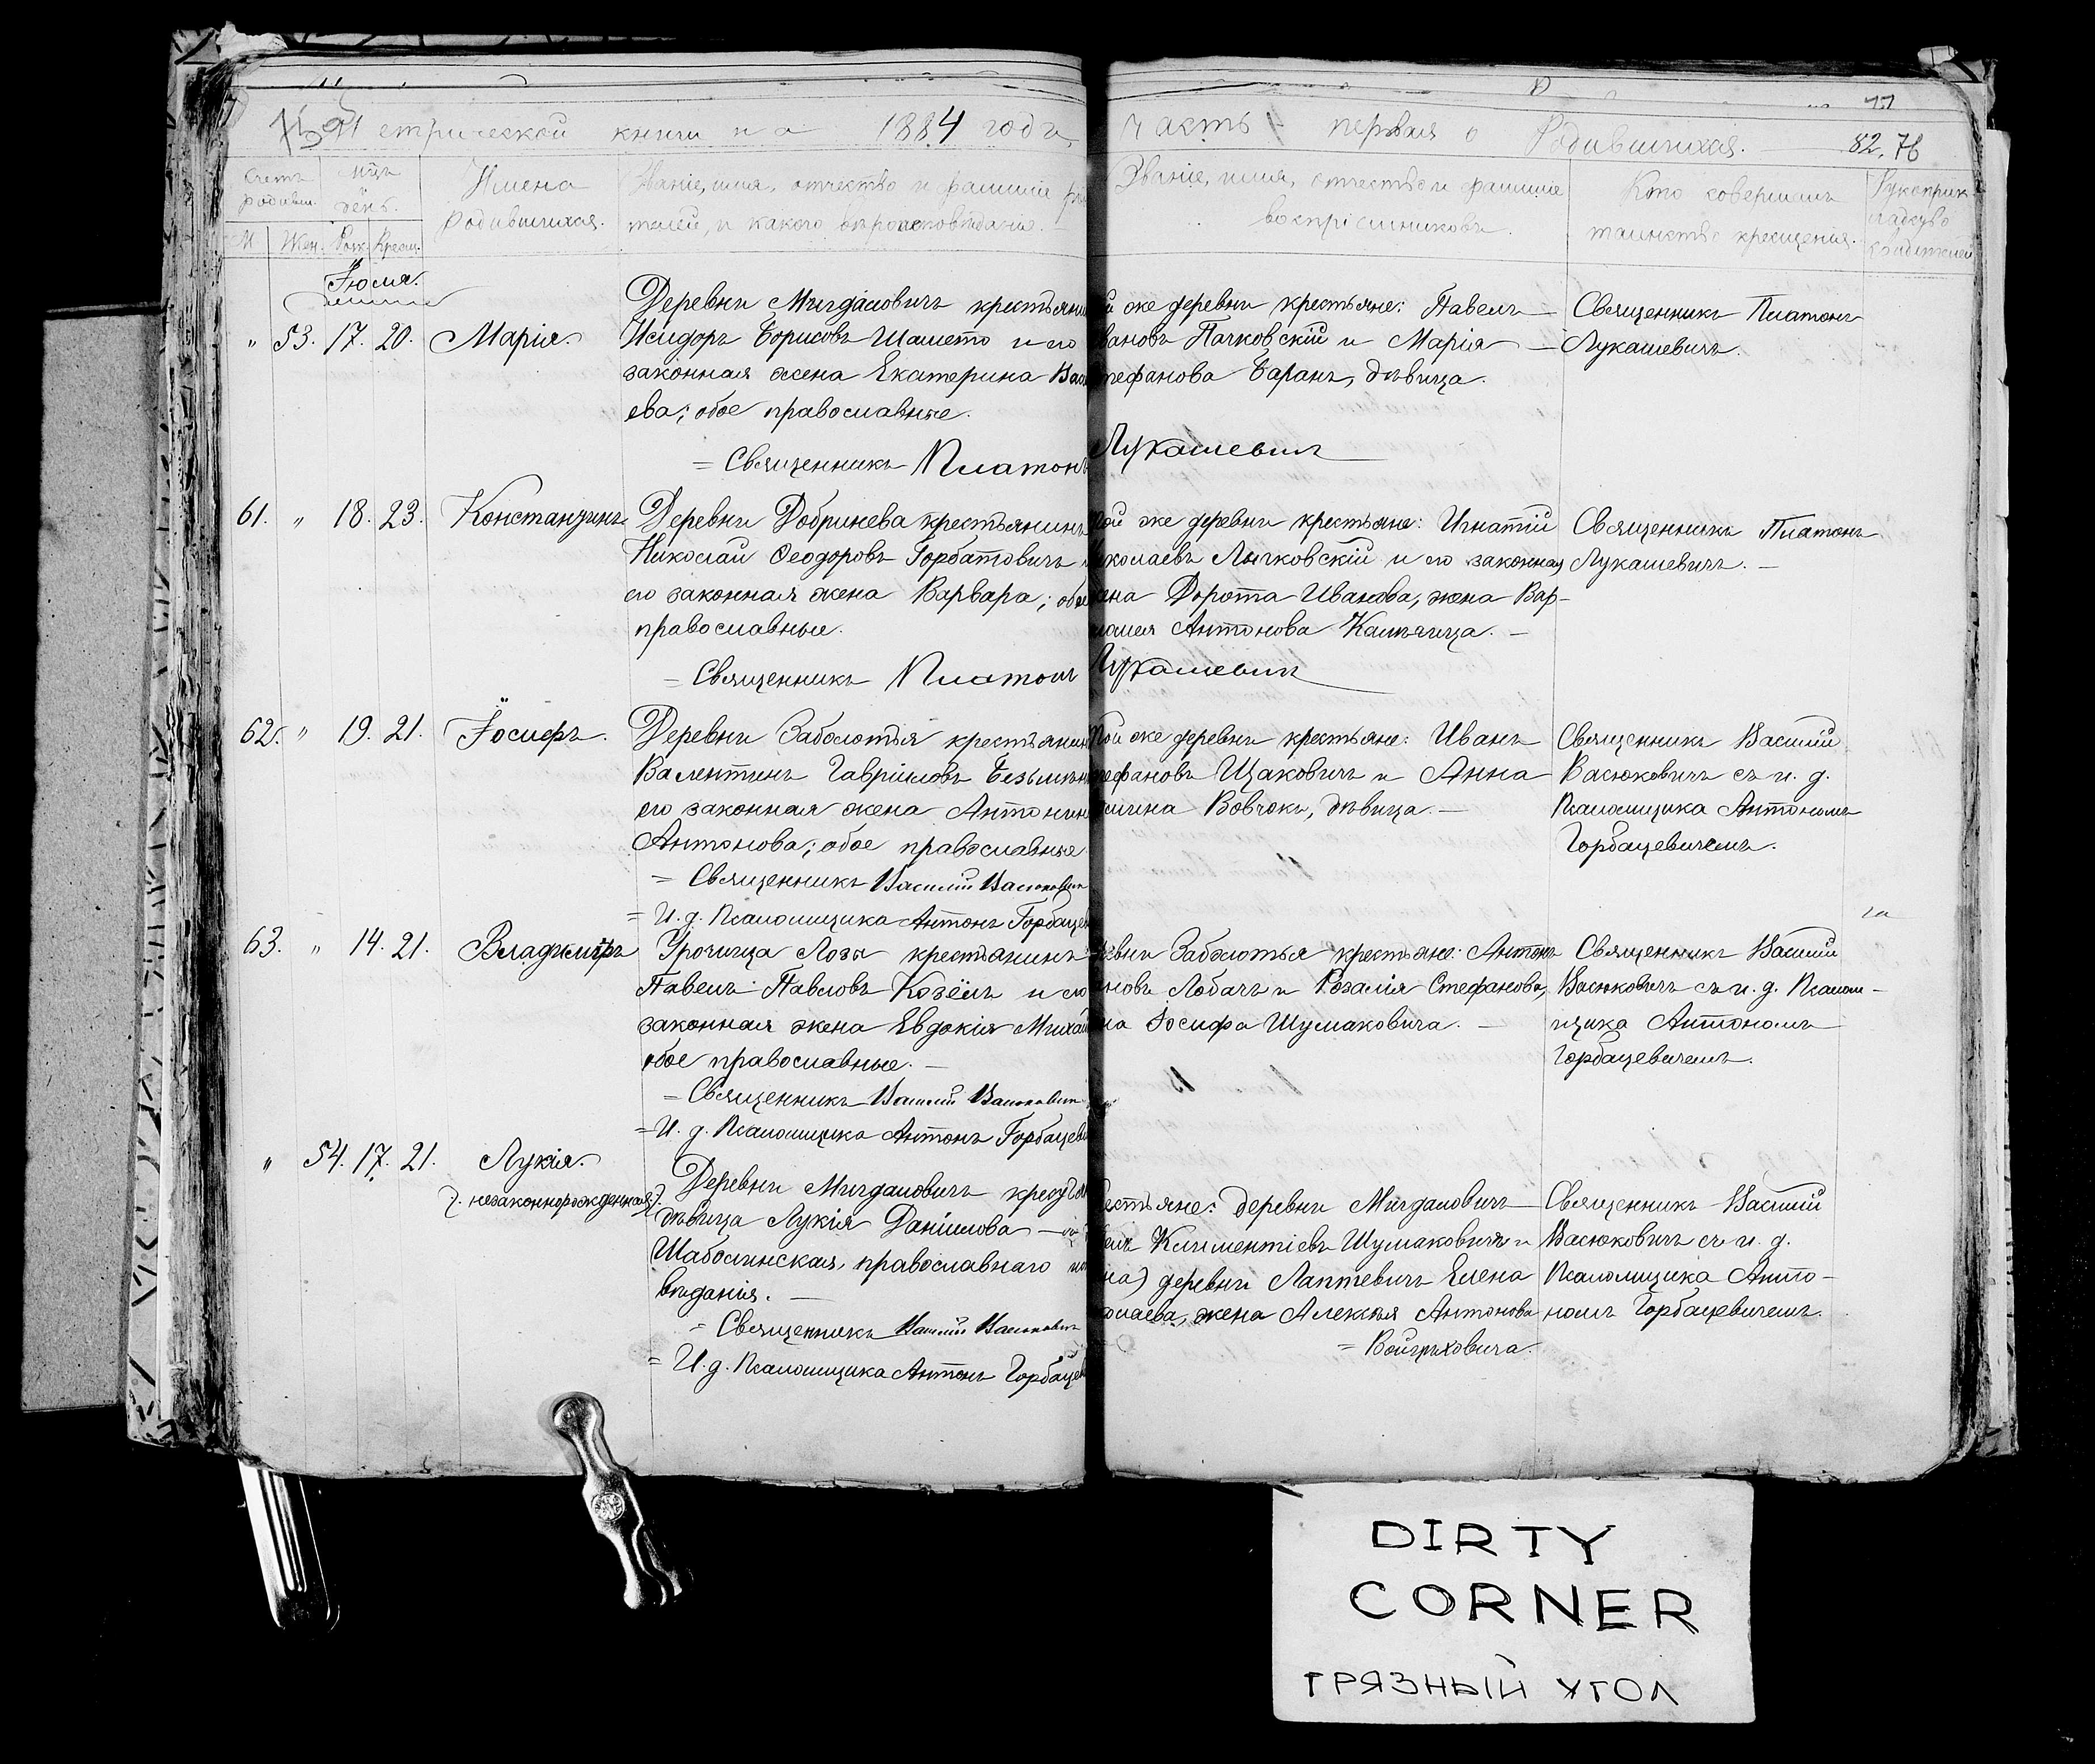 Метрической книги на 1884 годъ,
Часть первая о Родившихся.
82. 76
Счетъ родивш.
М Жен.
Мѣсяцъ день.
Рож. Крещ.
Имена
родившихся.
Званіе, имя, отчество и фамилія
и какого вѣроисповѣданія.
Званіе, имя, отчество и фамилія
воспріемниковъ.
Кто совершалъ
таинство крещенія.
Іюля.
„ 53. 17. 20. Марія.
Деревни Мигдаловичъ
Исидоръ Борисовъ Шашето и его
законная жена Екатерина
ева; обое православные.
= Священникъ Платонъ
же деревни крестьяне: Павелъ
Пачковскій и Марія
Баранъ, дѣвица.
Лукашевичъ
Священникъ Платонъ
Лукашевичъ.
61. „ 18. 23. Константинъ
Деревни Добринева крестьянинъ
Николай Ѳеодоровъ Горбатовичъ
его законная жена Варвара; обое
православные.
= Священникъ Платонъ
же деревни крестьяне: Игнатій
Лычковскій и его законная
Дорота Иванова, жена Вар-
Антонова
Лукашевичъ
Священникъ Платонъ
Лукашевичъ. —
62. „ 19. 21. Іосифъ.
Деревни Заболотья
Валентинъ Гавріиловъ
его законная жена
Антонова; обое православные
= Священникъ Василій Васюковичъ
= И. д. Псаломщика Антонъ
же деревни крестьяне: Иванъ
Щаковичъ и Анна
Вовчокъ, дѣвица. —
Священникъ Василій
Васюковичъ съ и. д.
Псаломщика Антономъ
Горбацевичемъ.
63. „ 14. 21. Владиміръ
Урочища Лозы крестьянинъ
Павелъ Павловъ Козёлъ и его
законная жена Евдокія
обое православные. —
= Священникъ Василій Васюковичъ
= И. д. Псаломщика Антонъ
Заболотья крестьяне: Антонъ
Лобачъ и Розалія Стефанова,
Іосифа Шумаковича. —
Священникъ Василій
Васюковичъ съ и. д. Псалом-
щика Антономъ
Горбацевичемъ.
„ 54. 17. 21. Лукія.
незаконнорожденная
Деревни Мигдаловичъ
дѣвица Лукія Даніилова
Шаболинская, православнаго
вѣданія. —
= Священникъ Василій Васюковичъ
= И. д. Псаломщика Антонъ
деревни Мигдаловичъ
Климентіевъ Шумаковичъ и
деревни Лаптевичъ Елена
жена Алексѣя Антонова
= Войцѣховича.
Священникъ Василій
Васюковичъ съ и. д.
Псаломщика Анто-
номъ Горбацевичемъ.
DIRTY
CORNER
ГРЯЗНЫЙ УГОЛ